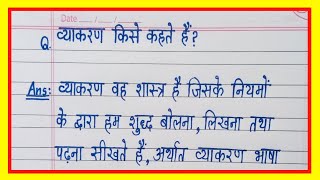 Date
Q. व्याकरण किसे कहते हैं?
Ans: व्याकरण वह शास्त्र है जिसके नियमों
के द्वारा हम शुद्ध बोलना, लिखना तथा
पढ़ना सीखते हैं, अर्थात व्याकरण भाषा